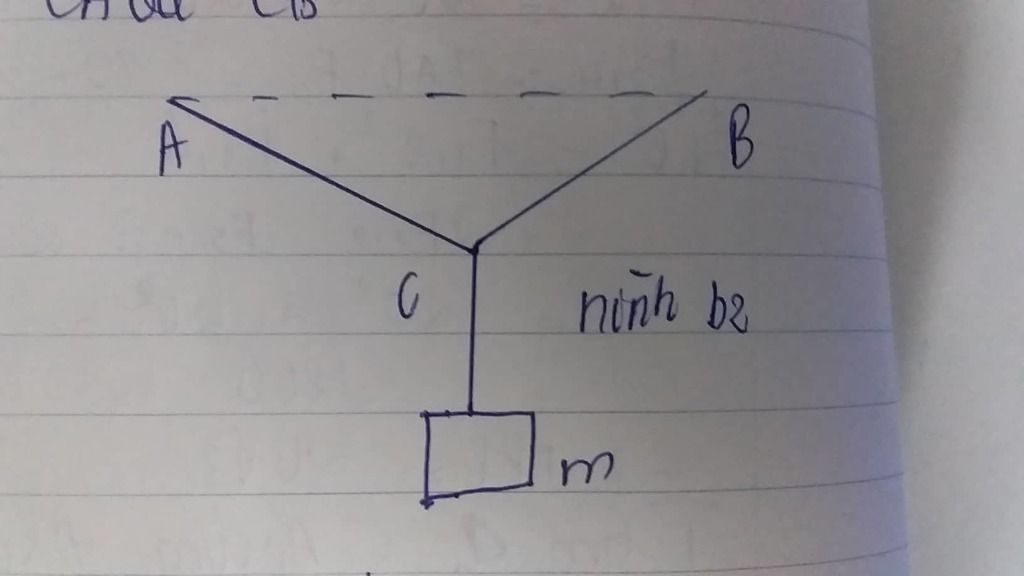 CB
A
B
C
hình b2
m